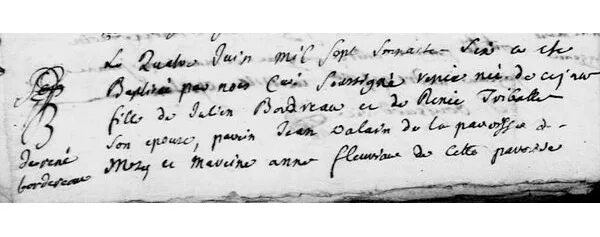 Le Quatre Juin mil sept soixante Six a été
Baptisé par nous Curé Soussigné renée née de ce jour
fille de Julien Bordreau et de Renée Triballe
Son epouse, parein Jean Valain de la paroisse de
Mozé et mareine anne fleuriau de cette paroisse
de rené
bordereau